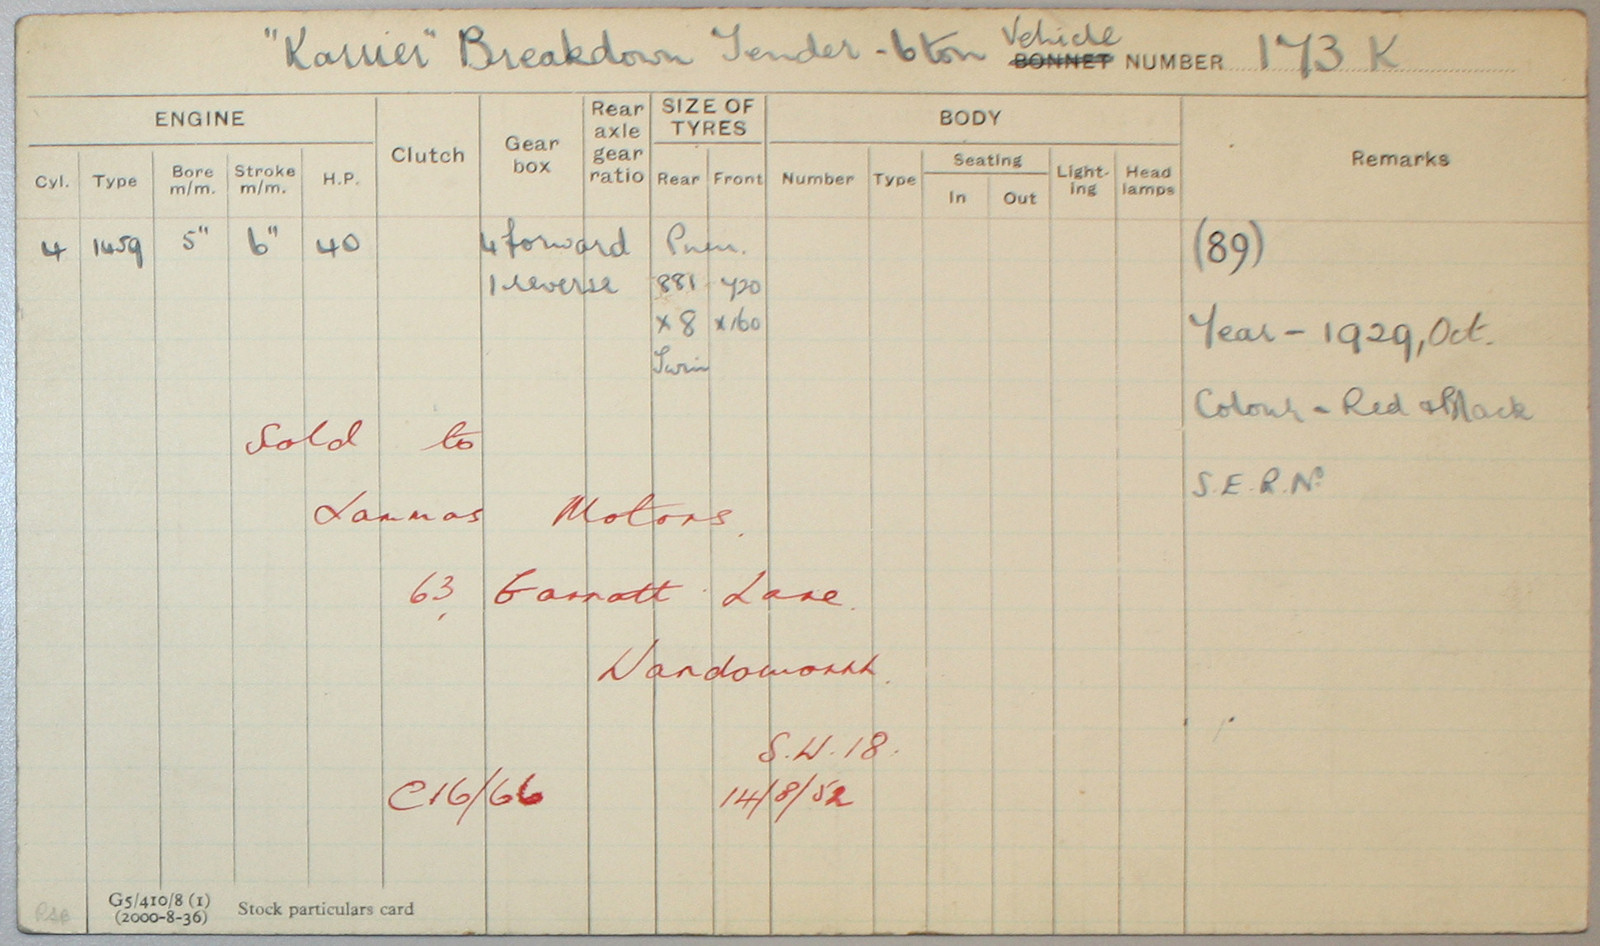 "Karrier" Breakdown Tender - 6 ton Vehicle BONNET NUMBER 173 K
ENGINE Clutch Gear box Rear axle gear ratio SIZE OF TYRES BODY Remarks
Cyl. Type Bore m/m. Stroke m/m. H.P. Rear Front Number Type Seating In Out Light-ing Head lamps
4 1459 5" 6" 40 4 forward Pneu. (89)
1 reverse 881 720
x 8 x 160 Year - 1929, Oct.
Twin
Colour - Red & Black
Sold to
S.E.R. No
Lammas Motors.
63, Garratt Lane.
Wandsworth.
S.W. 18.
C16/66 14/8/52
G5/410/8 (1)
(2000-8-36) Stock particulars card